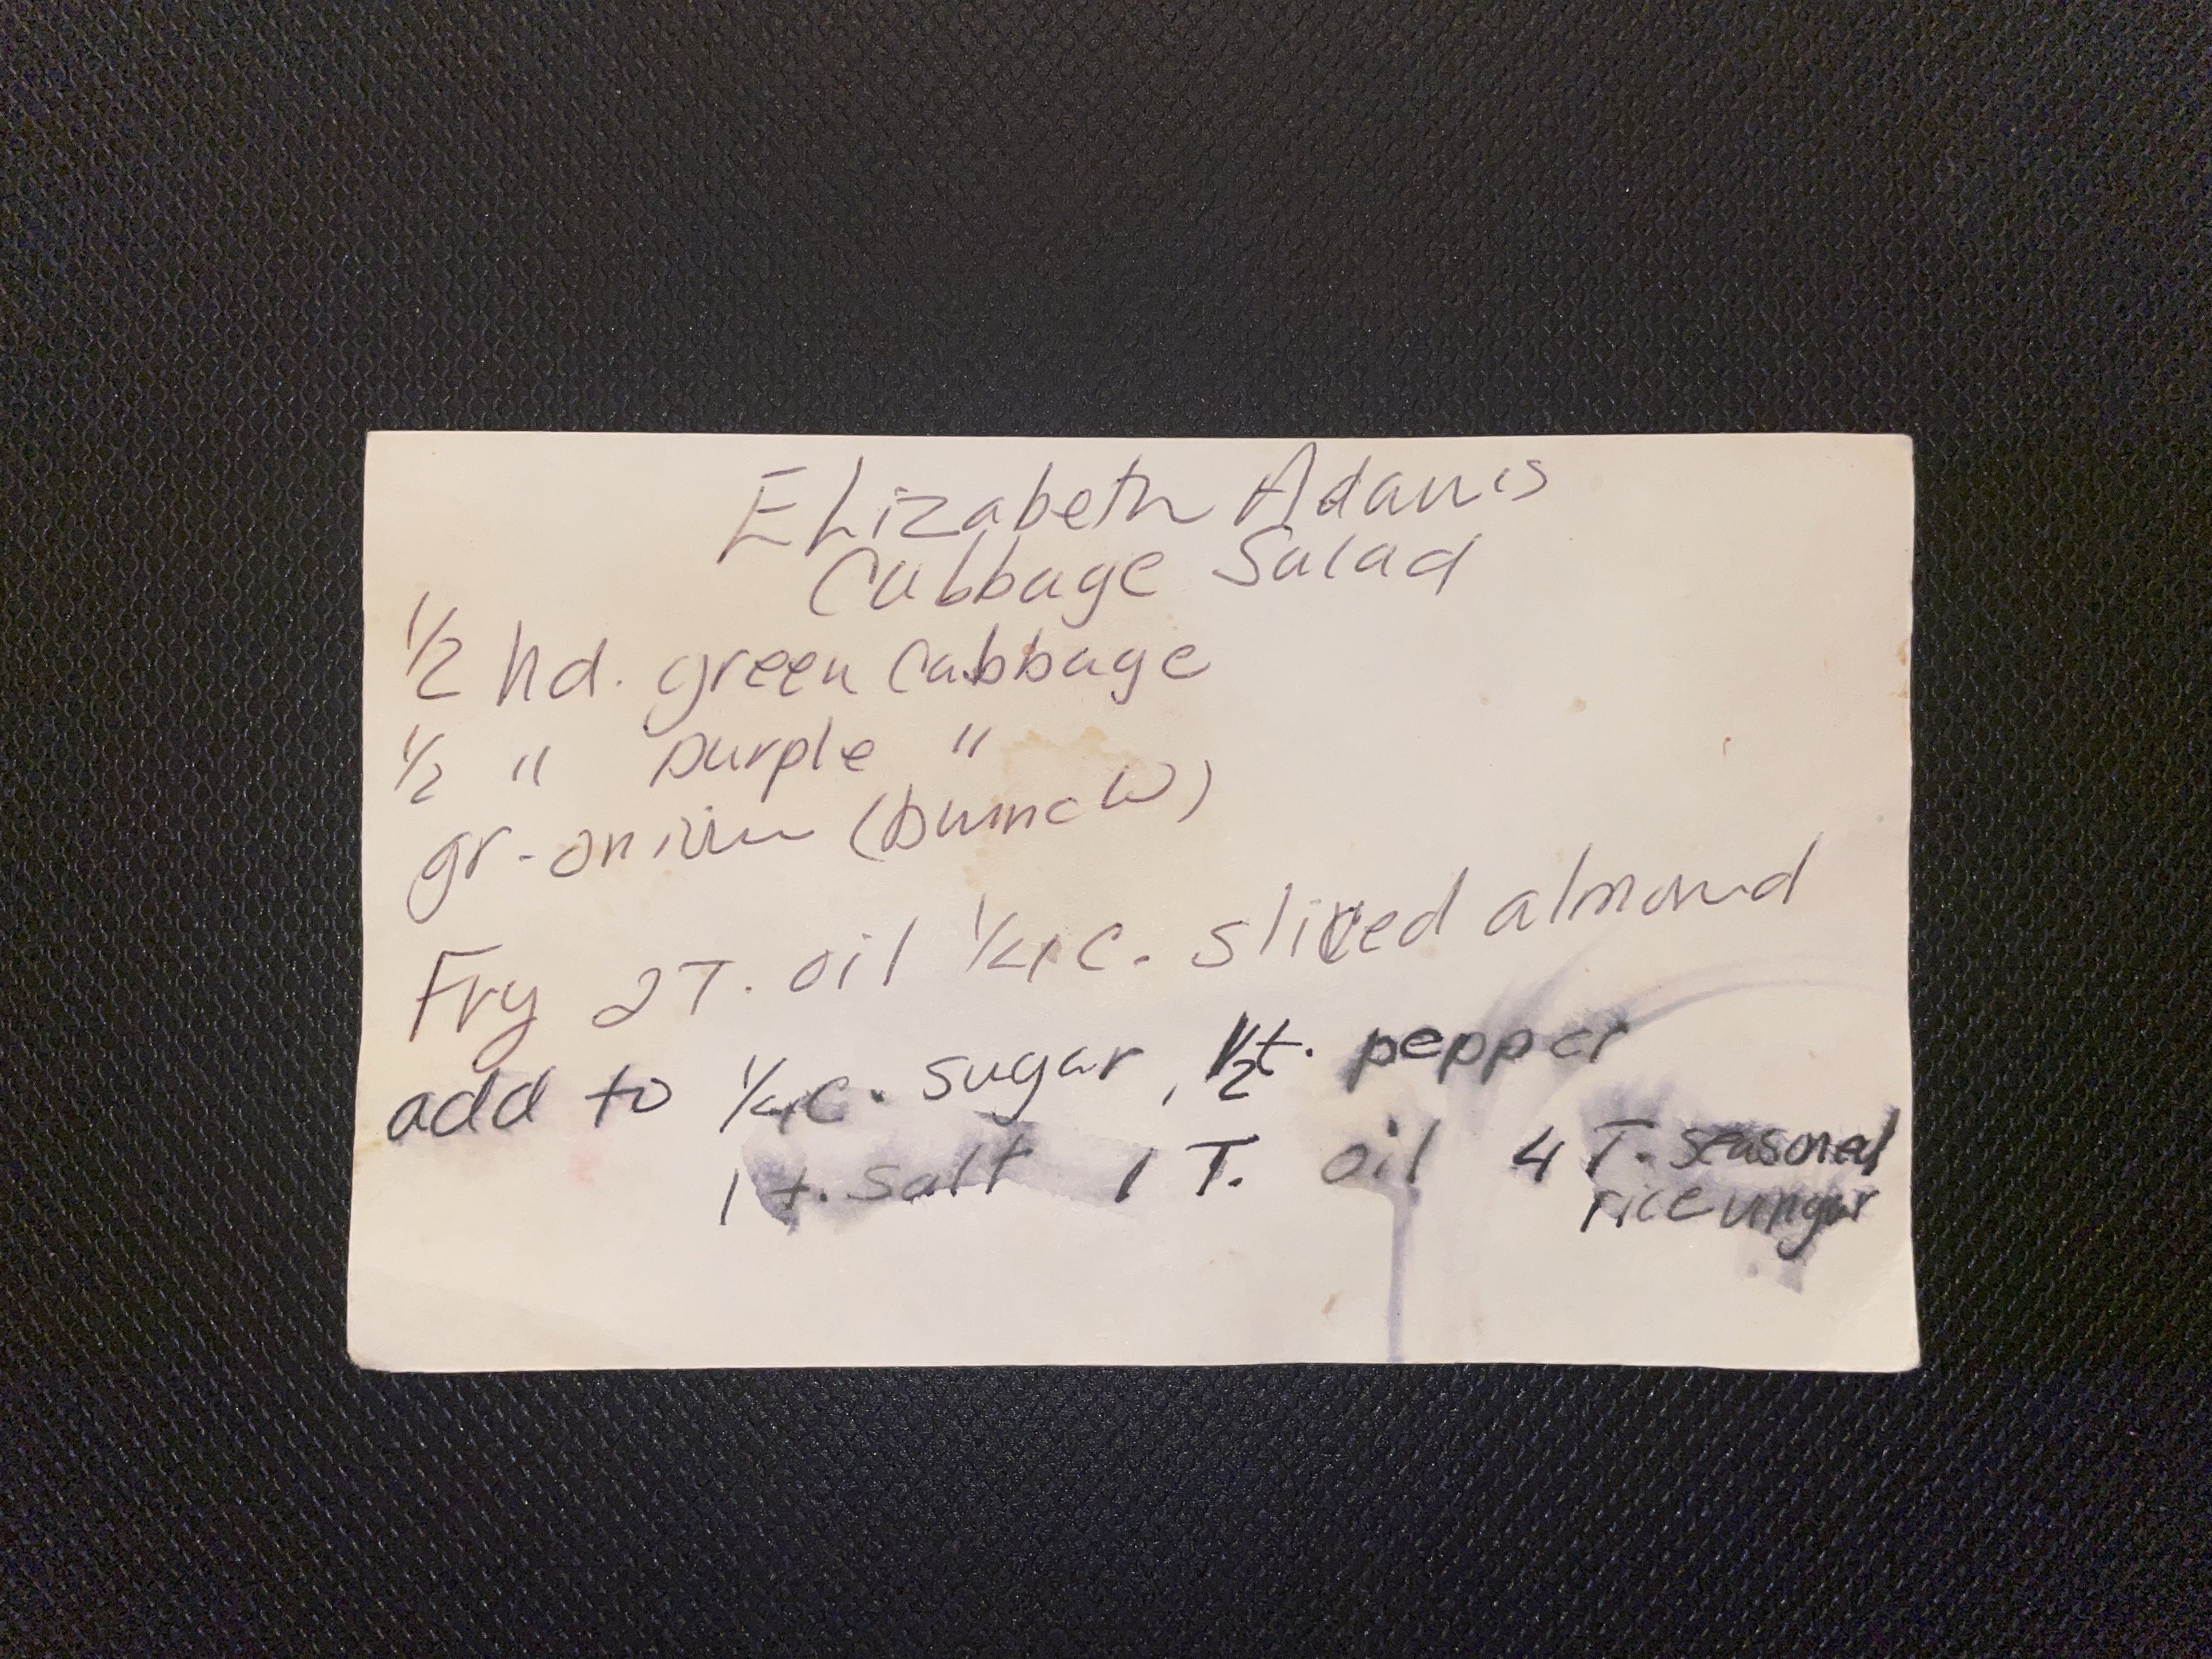 Elizabeth Adams
Cabbage Salad
1/2 hd. green cabbage
1/2 " purple "
gr-onion (bunch)
Fry 2 T. oil 1/4 c. sliced almond
add to 1/4 c. sugar, 1/2 t. pepper
1 t. salt 1 T. oil 4 T. seasoned
rice